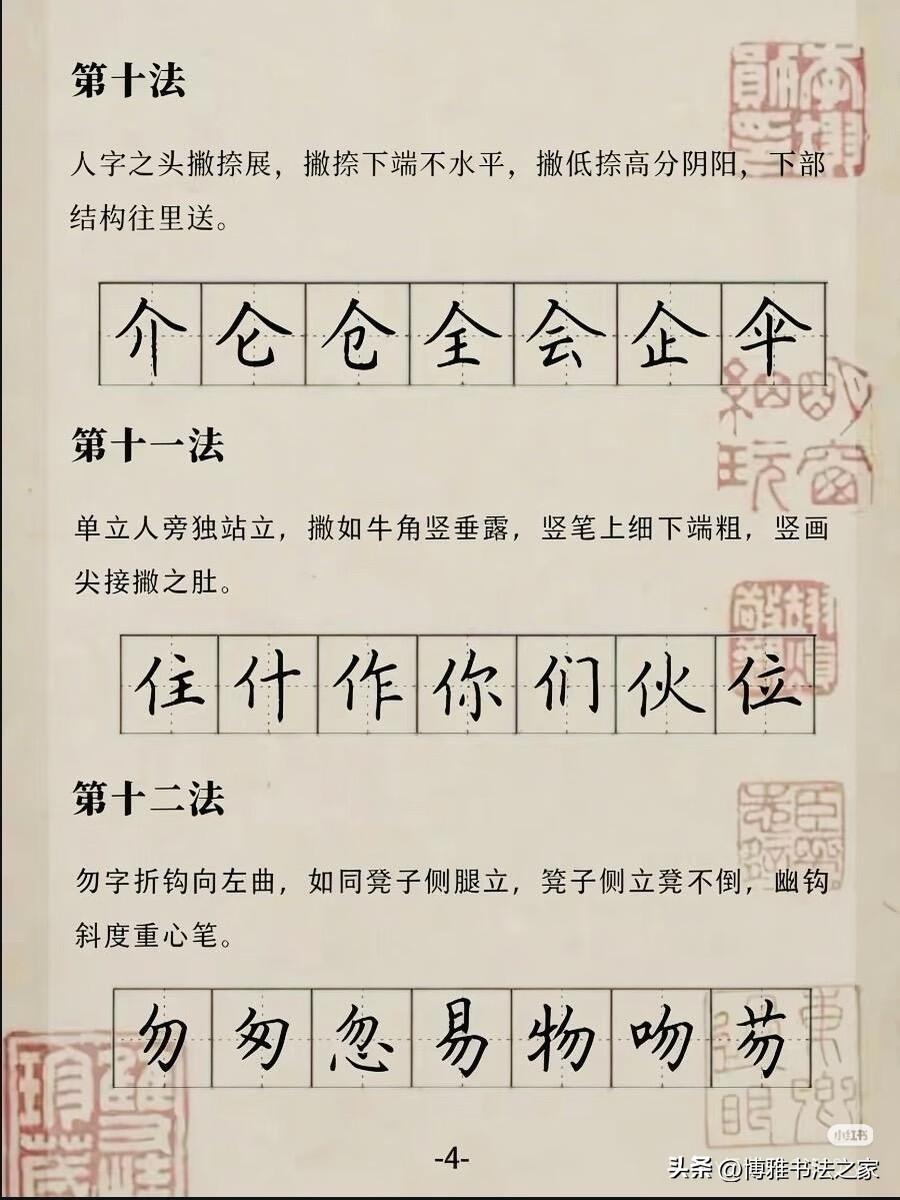 第十法
人字之头撇捺展，撇捺下端不水平，撇低捺高分阴阳，下部
结构往里送。
介仑仓全会企伞
第十一法
单立人旁独站立，撇如牛角竖垂露，竖笔上细下端粗，竖画
尖接撇之肚。
住什作你们伙位
第十二法
勿字折钩向左曲，如同凳子侧腿立，凳子侧立凳不倒，幽钩
斜度重心笔。
勿匆忽易物吻芴
-4-
小红书
头条 @博雅书法之家